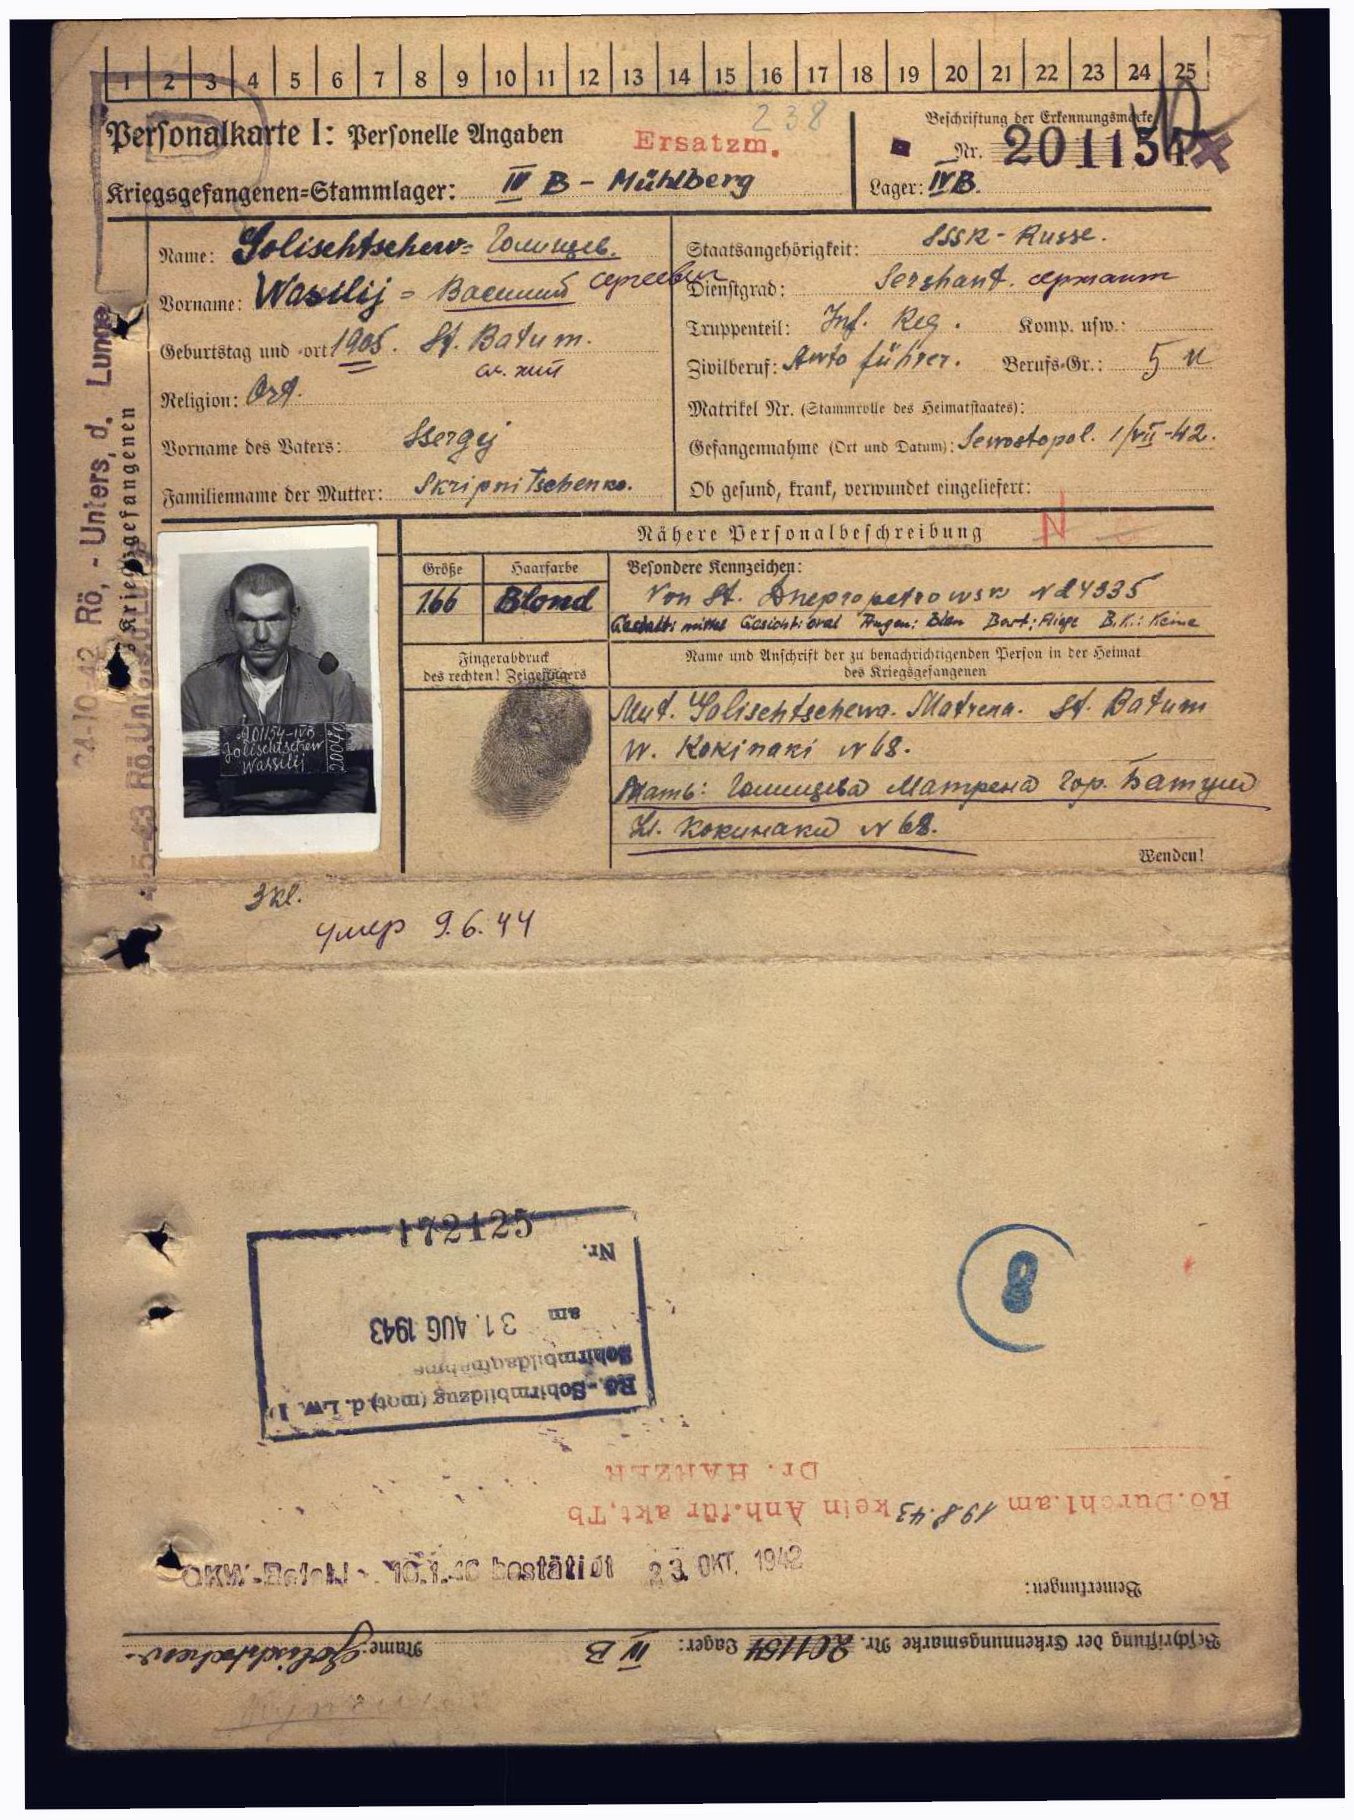 1 2 3 4 5 6 7 8 9 10 11 12 13 14 15 16 17 18 19 20 21 22 23 24 25
Personalkarte I: Personelle Angaben
238
Ersatzm.
Beschriftung der Erkennungsmarke
Nr. 201154
Kriegsgefangenen-Stammlager: IV B - Mühlberg
Lager: IVB.
Name: Golischtschew = Голищев.
Vorname: Wassilij = Василий Сергеевич
Geburtstag und -ort 1905. St. Batum.
Religion: Ort.
Vorname des Vaters: Ssergij
Familienname der Mutter: Skripnitschenko.
Staatsangehörigkeit: SSSR - Russe.
Dienstgrad: Serzhant. сержант
Truppenteil: Inf. Reg. Komp. usw.:
Zivilberuf: Auto führer. Berufs-Gr.: 5
Matrikel Nr. (Stammrolle des Heimatstaates):
Gefangennahme (Ort und Datum): Sewostopol. 1/VII-42.
Ob gesund, krank, verwundet eingeliefert:
24-10-42 Rö.- Unters. d. Lunge
4-5-43 Rö.Unters.d.Lunge
Kriegsgefangenen
Nähere Personalbeschreibung
N
Größe
166
Haarfarbe
Blond
Besondere Kennzeichen:
Von St. Dnepropetrowsk N 24335
Gestalt: mittel Gesicht: oval Augen: Blau Bart: Fliege B.K.: Keine
Fingerabdruck
des rechten! Zeigefingers
Name und Anschrift der zu benachrichtigenden Person in der Heimat
des Kriegsgefangenen
Mut. Golischtschewa. Matrena. St. Batum
W. Kokinaki N 68.
Мать: Голищева Матрена гор. Батуми
Ул. Кокинаки N 68.
Wenden!
201154-IVB
Golischtschew
Wassilij
3 kl.
умер 9.6.44
172125
Nr.
am 31. AUG 1943
Schirmbildaufnahme
Rö.-Schirmbildzug (mot) d. Lw. 1
8
Dr. HARZER
Rö.Durchl.am 19.8.43 kein Anh.für akt.Tb
OKW-Befehl bestätigt 23. OKT. 1942
Bemerkungen:
Beschriftung der Erkennungsmarke Nr. 201154 Lager: IV B Name: Golischtschew.